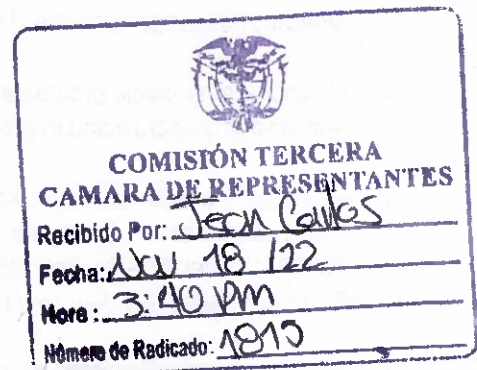 COMISIÓN TERCERA
CAMARA DE REPRESENTANTES
Recibido Por: Jean Carlos
Fecha: Nov 18 /22
Hora: 3:40 PM
Número de Radicado: